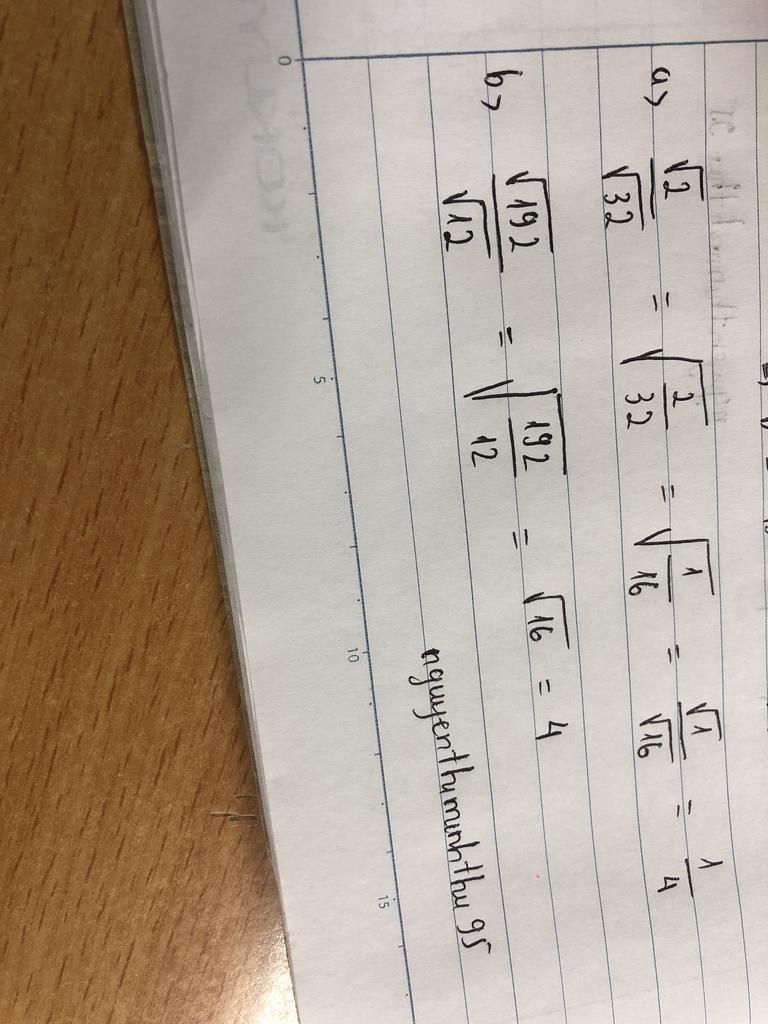 a) √2/√32 = √(2/32) = √(1/16) = √1/√16 = 1/4
b) √192/√12 = √(192/12) = √16 = 4
nguyenthiminhthu95
0 5 10 15